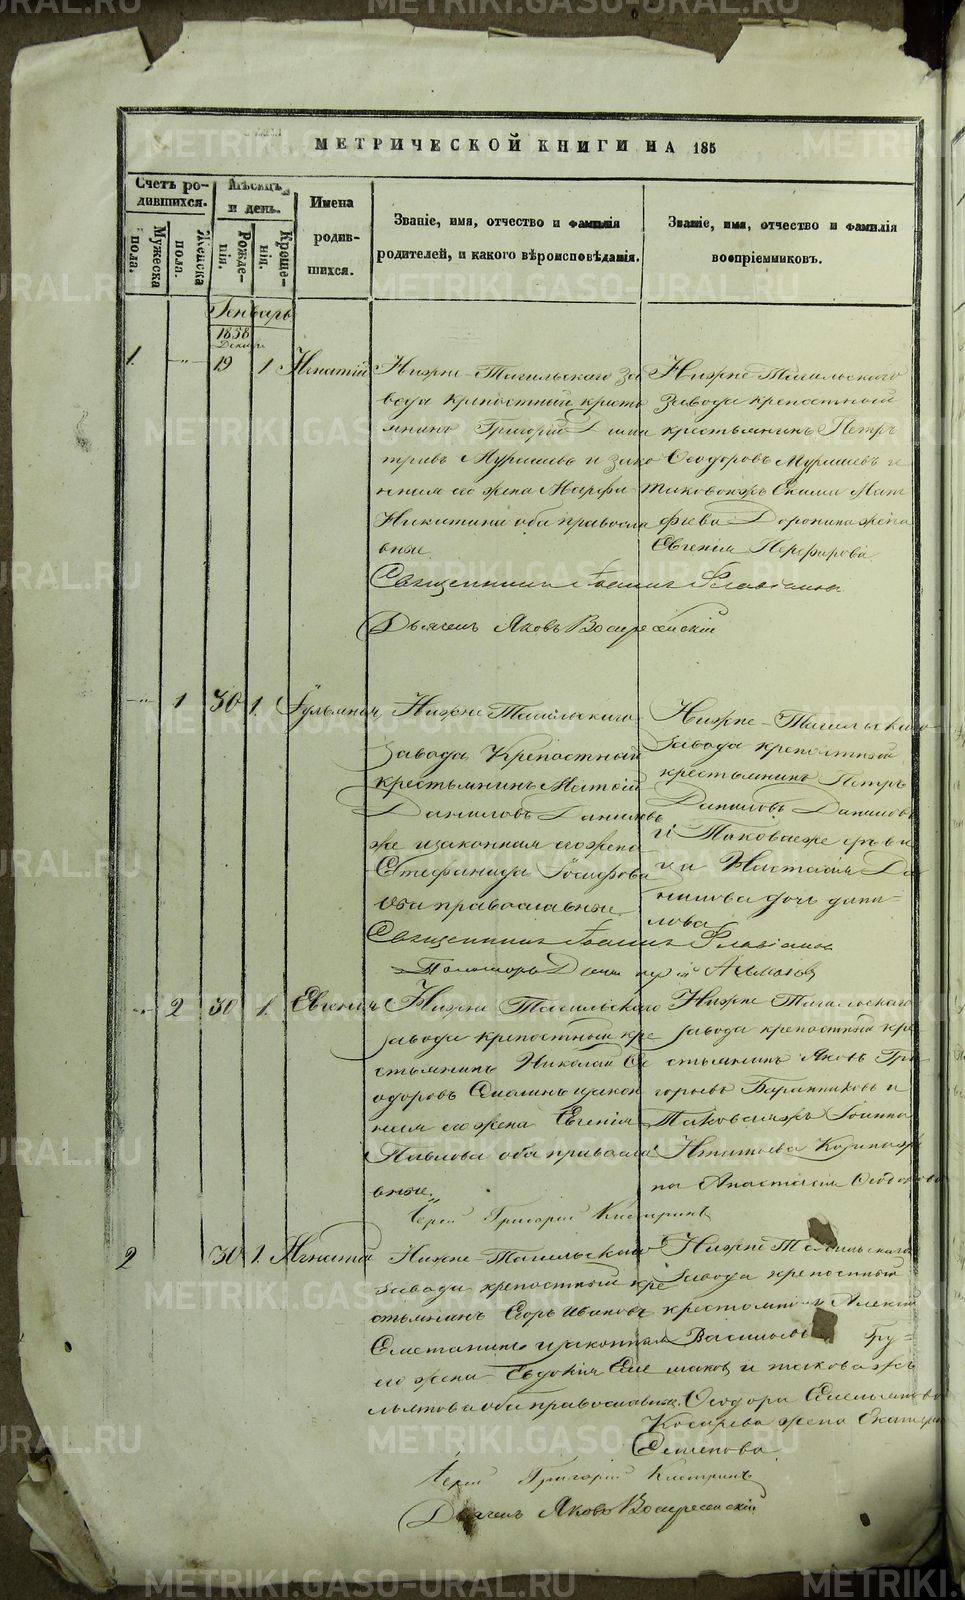 METRIKI.GASO-URAL.RU
МЕТРИЧЕСКОЙ КНИГИ НА 185
Счетъ ро-
дившихся.
Мужеска
пола.
Женска
пола.
Мѣсяцъ
и день.
Рожде-
нія.
Креще-
нія.
Имена
родив-
шихся.
Званіе, имя, отчество и фамилія
родителей, и какого вѣроисповѣданія.
Званіе, имя, отчество и фамилія
воспріемниковъ.
Генварь
1858
Декабр
1. 19 1 Игнатій
Нижне-Тагильскаго за
вода крѣпостный кресть
янинъ Григорій Дими
тріевъ Мурашевъ и зако
нная его жена Марфа
Никитина оба правосла
вные.
Нижне-Тагильскаго
завода крепостный
крестьянинъ Петръ
Ѳеодоровъ Мурашевъ и
таковаяжъ
Доронина жена
Евгенія Перфирова
Священникъ Іоаннъ Флавіановъ
Дьячекъ Яковъ Воскресенскій
1 30 1. Іуліанія
Нижне Тагильскаго
завода Крѣпостный
крестьянинъ Матѳій
Даниловъ Даниловъ
же и законная его жена
Стефанида Іосифова
Оба православные.
Нижне-Тагильскаго
завода крепостной
крестьянинъ Петръ
Даниловъ Даниловъ
и Таковаяже дѣви
ца Настасія Да
нилова дочь Дани-
лова
Священникъ Іоаннъ Флавіановъ
Пономарь
2 30 1. Евгенія
Нижне Тагильскаго
завода крепостный кре
стьянинъ Николай Ѳе
одоровъ и закон
ная его жена Евгенія
Павлова оба правосла
вные.
Нижне Тагильскаго
завода крепостный кре
стьянинъ Яковъ Гри
горьевъ Баранниковъ и
Таковаяжъ Іоанна
Игнатьева
на Анастасія Ѳеодорова
Іерей Григорій Кастринъ
2 30 1. Игнатій
Нижне-Тагильскаго
завода крепостный кре
стьянинъ Егоръ Ивановъ
Сметанинъ и законная
его жена Евдокія Еме
льянова оба православные.
Нижне Тагильскаго
завода крепостный
крестьянинъ Алексій
Васильевъ Гру-
шаковъ и таковаяжъ
Ѳеодора Емельянова
Косарева жена Екатерина
Семенова
Іерей Григорій Кастринъ
Дьячекъ Яковъ Воскресенскій